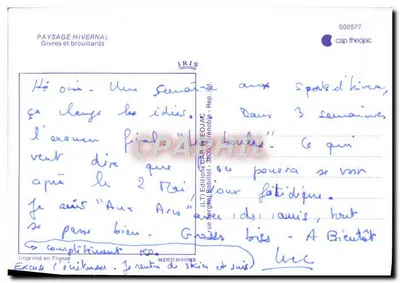 PAYSAGE HIVERNAL
Givres et brouillards
000577
cap theojac
IRIS
Hé oui. Une semaine aux sports d'hiver,
ça change les idées. Dans 3 semaines
l'examen final "les boules". Ce qui
veut dire que on pourra se voir
après le 2 Mai, jour fatidique.
Je suis "Aux Arcs avec des amis, tout
se passe bien. Grosses bises - A Bientôt
complètement KO.
Luc
Imprimé en France
MEXICHROME
Excuse l'écriture. Je rentre de skier et suis
(LT) Editions CAP-THEOJAC
CPAPHIL